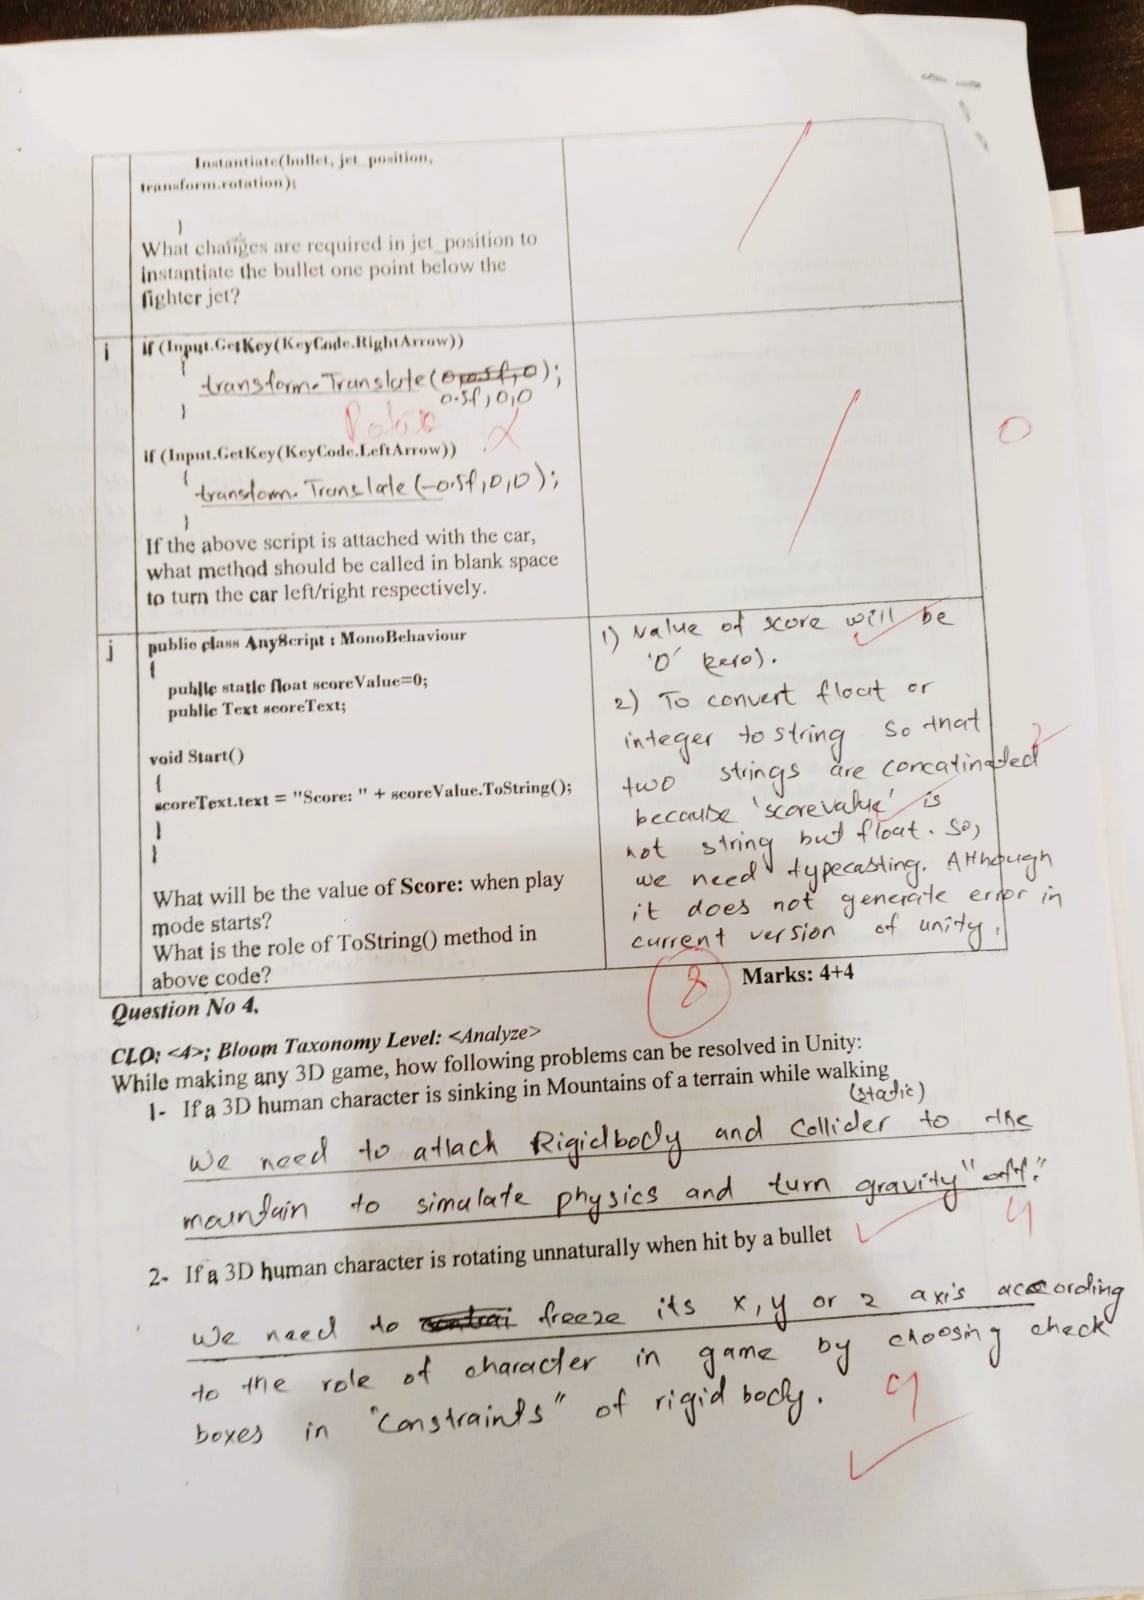 Instantiate(bullet, jet_position,
transform.rotation);
}
What changes are required in jet_position to
instantiate the bullet one point below the
fighter jet?
i
if (Input.GetKey(KeyCode.RightArrow))
{
transform.Translate(
);
0.5f,0,0
}
Rotate
0
if (Input.GetKey(KeyCode.LeftArrow))
{
transform.Translate(-0.5f,0,0);
}
If the above script is attached with the car,
what method should be called in blank space
to turn the car left/right respectively.
j
public class AnyScript : MonoBehaviour
{
public static float scoreValue=0;
public Text scoreText;
void Start()
{
scoreText.text = "Score: " + scoreValue.ToString();
}
}
What will be the value of Score: when play
mode starts?
What is the role of ToString() method in
above code?
1) Value of score will be
'0' (zero).
2) To convert float or
integer to string so that
two strings are concatinated
because 'scorevalue' is
not string but float. So,
we need typecasting. Although
it does not generate error in
current version of unity.
2
8
Marks: 4+4
Question No 4.
CLO: <4>; Bloom Taxonomy Level: <Analyze>
While making any 3D game, how following problems can be resolved in Unity:
1- If a 3D human character is sinking in Mountains of a terrain while walking
(static)
We need to attach Rigidbody and Collider to the
mountain to simulate physics and turn gravity "off".
4
2- If a 3D human character is rotating unnaturally when hit by a bullet
We need to freeze its x, y or z axis according
to the role of character in game by choosing check
boxes in "Constraints" of rigid body.
4